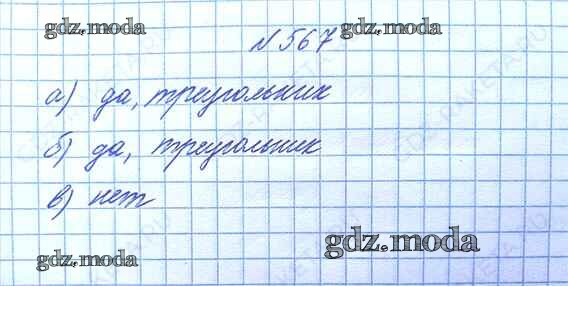 gdz.moda № 567 gdz.moda
а) да, треугольник
б) да, треугольник
в) нет
gdz.moda gdz.moda